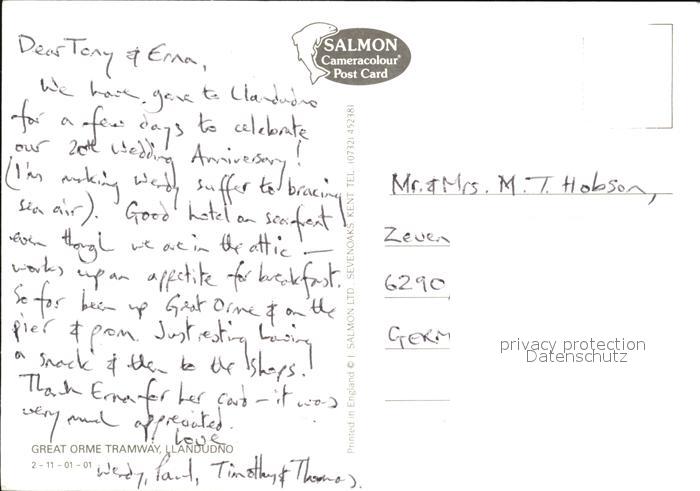 Dear Tony & Erna,
We have gone to Llandudno
for a few days to celebrate
our 20th Wedding Anniversary!
(I'm making Wendy suffer to bracing
sea air). Good hotel on seafront
even though we are in the attic —
works up an appetite for breakfast.
So far been up Great Orme & on the
pier & prom. Just resting having
a snack & then to the shops!
Thank Erna for her card – it was
very much appreciated.
Love
Wendy, Paul, Timothy & Thomas.
GREAT ORME TRAMWAY, LLANDUDNO
2-11-01-01
SALMON
Cameracolour®
Post Card
Printed in England © J. SALMON LTD. SEVENOAKS KENT TEL. (0732) 452381
Mr. & Mrs. M. T. Hobson,
Zeven
6290
GERM
privacy protection
Datenschutz